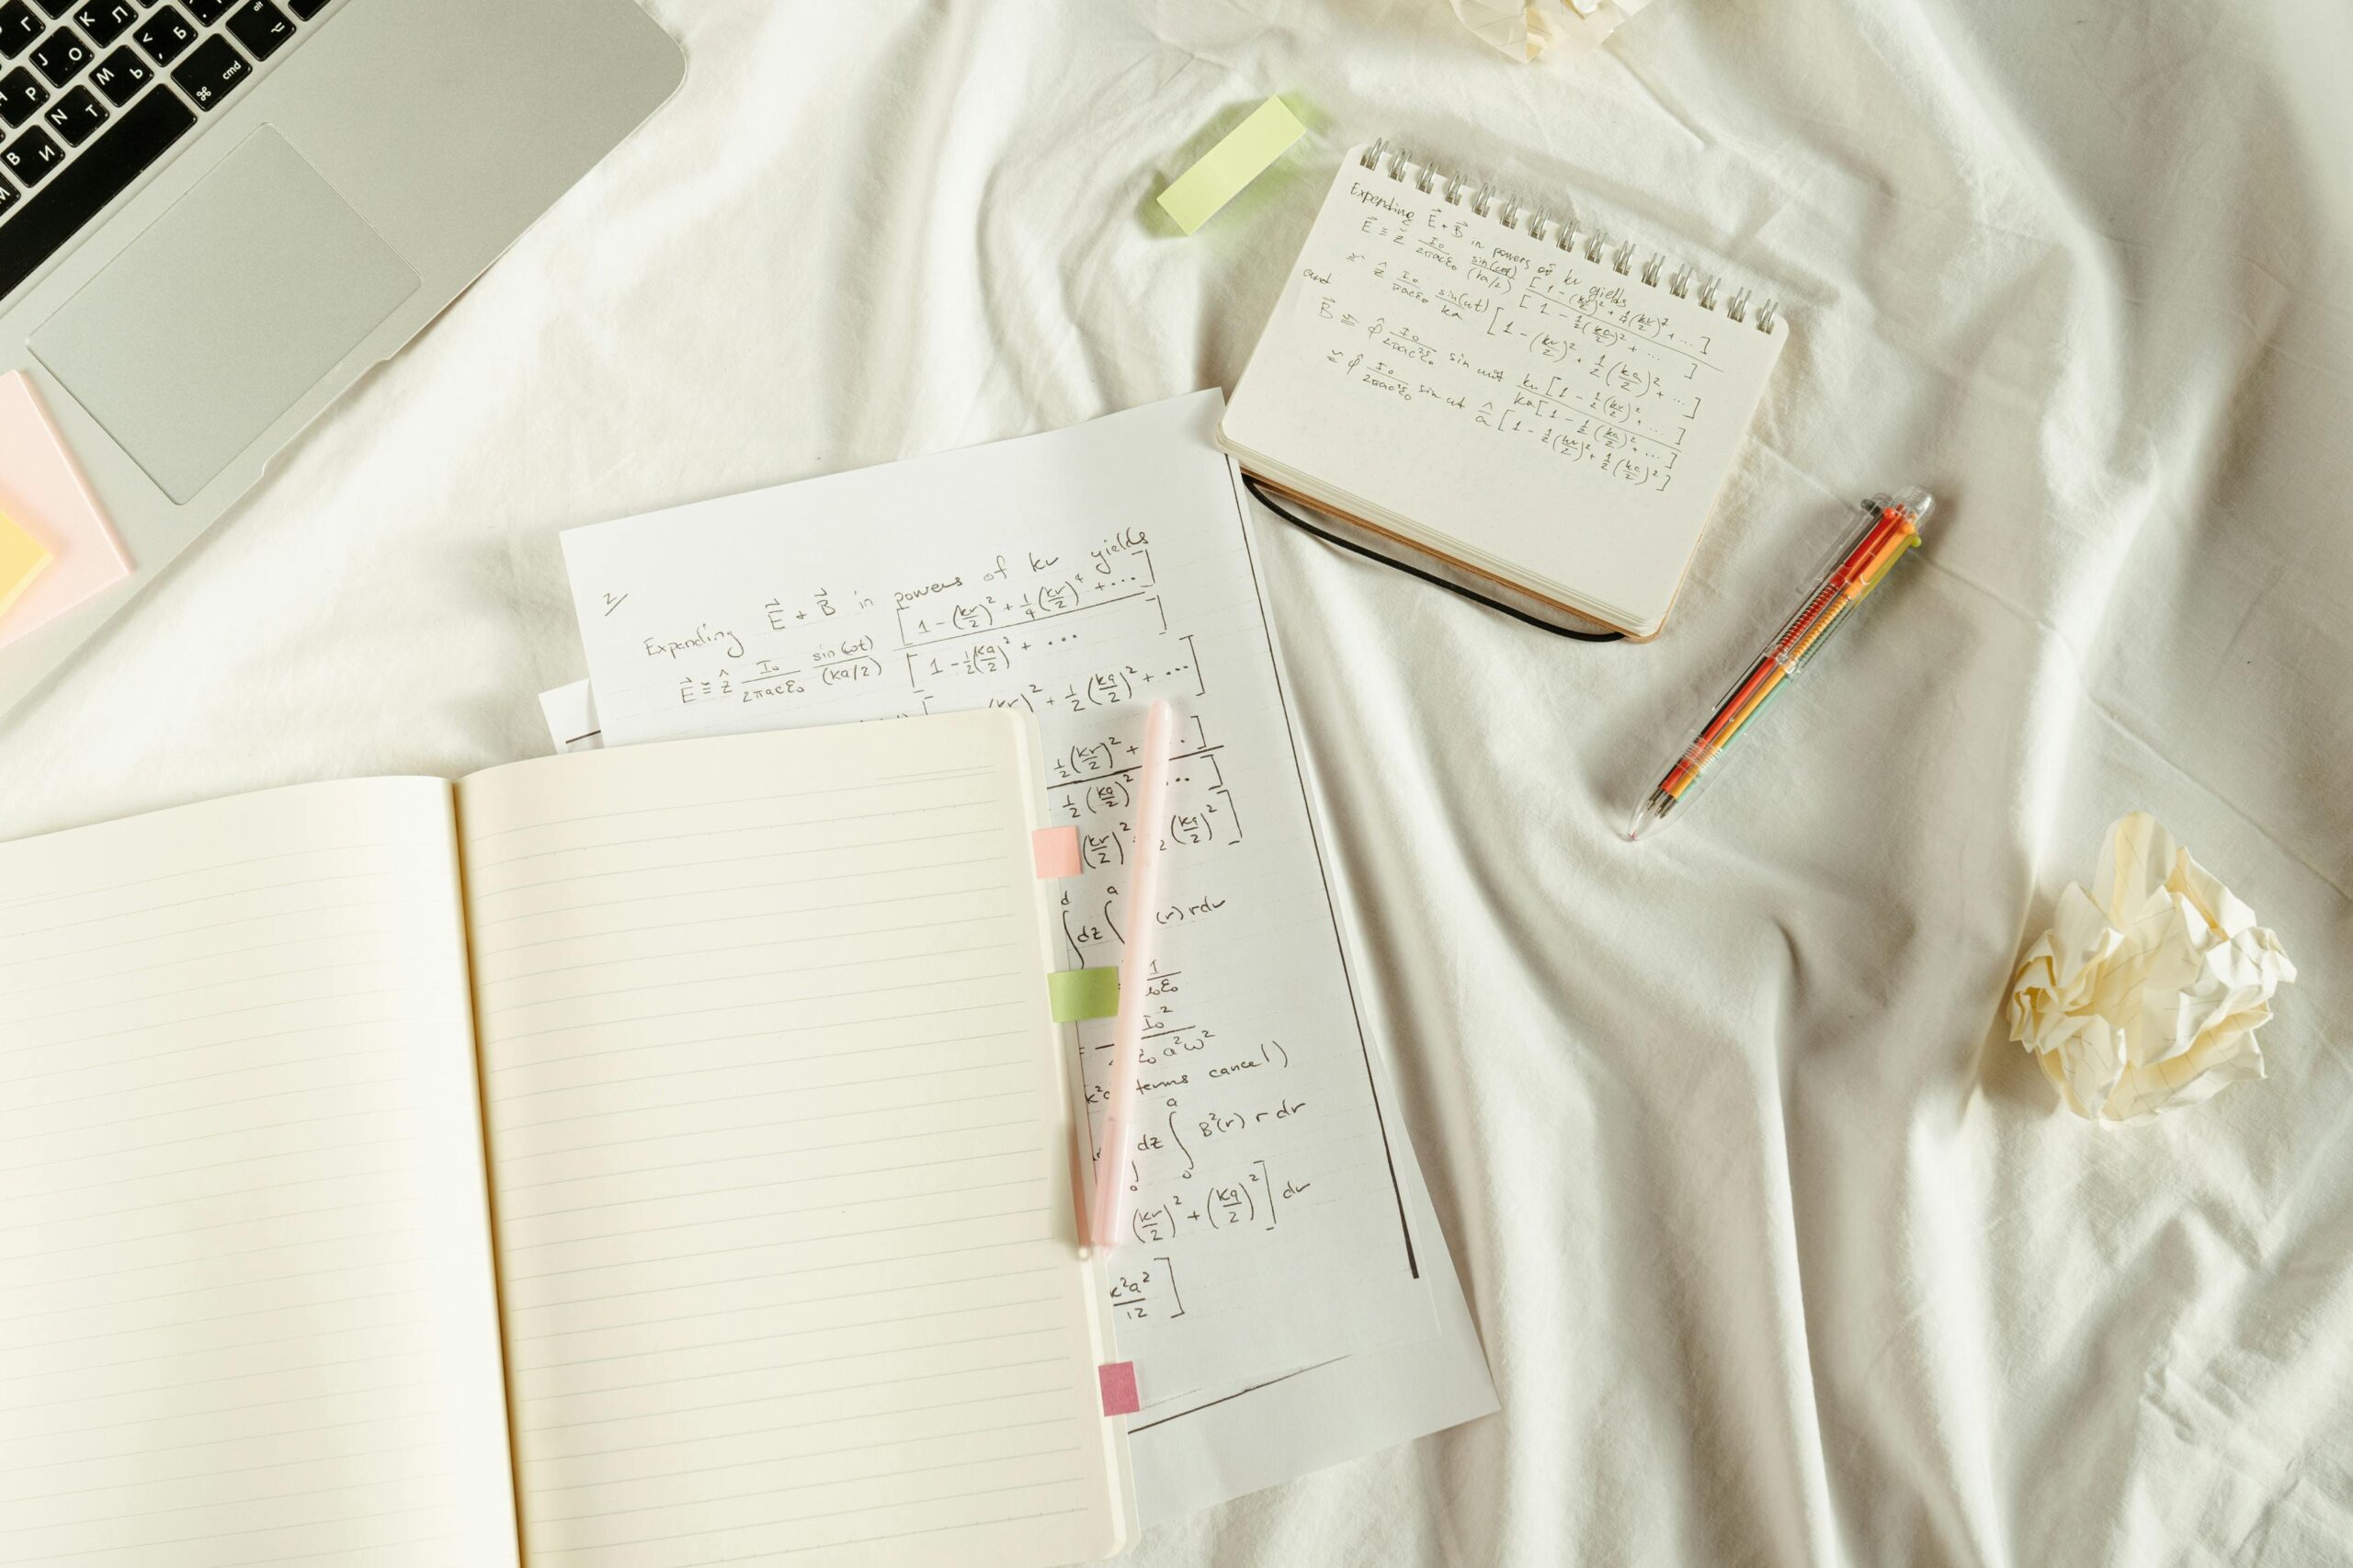 Г К Л < Б alt ⌥
J О M Ь ⌘ cmd
Р N Т
В И
М
Expending E⃗ + B⃗ in powers of kr yields
E⃗ ≅ ẑ I₀/2πacε₀ sin(ωt)/(ka/2) [1 - (kr/2)² + 1/4(kr/2)² + ...]/[1 - 1/2(ka/2)² + ...]
≅ ẑ I₀/πacε₀ sin(ωt)/ka [1 - (kr/2)² + 1/2(ka/2)² + ...]
and
B⃗ ≅ φ̂ I₀/2πac²ε₀ sin ωt kr[1 - 1/2(kr/2)² + ...]/ka[1 - 1/2(ka/2)² + ...]
≅ φ̂ I₀/2πac²ε₀ sin ωt [1 - 1/2(kr/2)² + 1/2(ka/2)²]
2/
Expending E⃗ + B⃗ in powers of kr yields
E⃗ ≅ ẑ I₀/2πacε₀ sin(ωt)/(ka/2) [1 - (kr/2)² + 1/4(kr/2)⁴ + ....]/[1 - 1/2(ka/2)² + ...]
(kr)² + 1/2(ka/2)² + ...]
1/2(kr/2)² + .]
1/2(ka/2)² ...]
(kr/2)² 2(ka/2)²]
∫d dz ∫a (r) r dr
1/ε₀
= I₀²/ε₀a²ω²
terms cancel)
∫₀ dz ∫₀a B²(r) r dr
(kr/2)² + (ka/2)²] dr
k²a²/12]